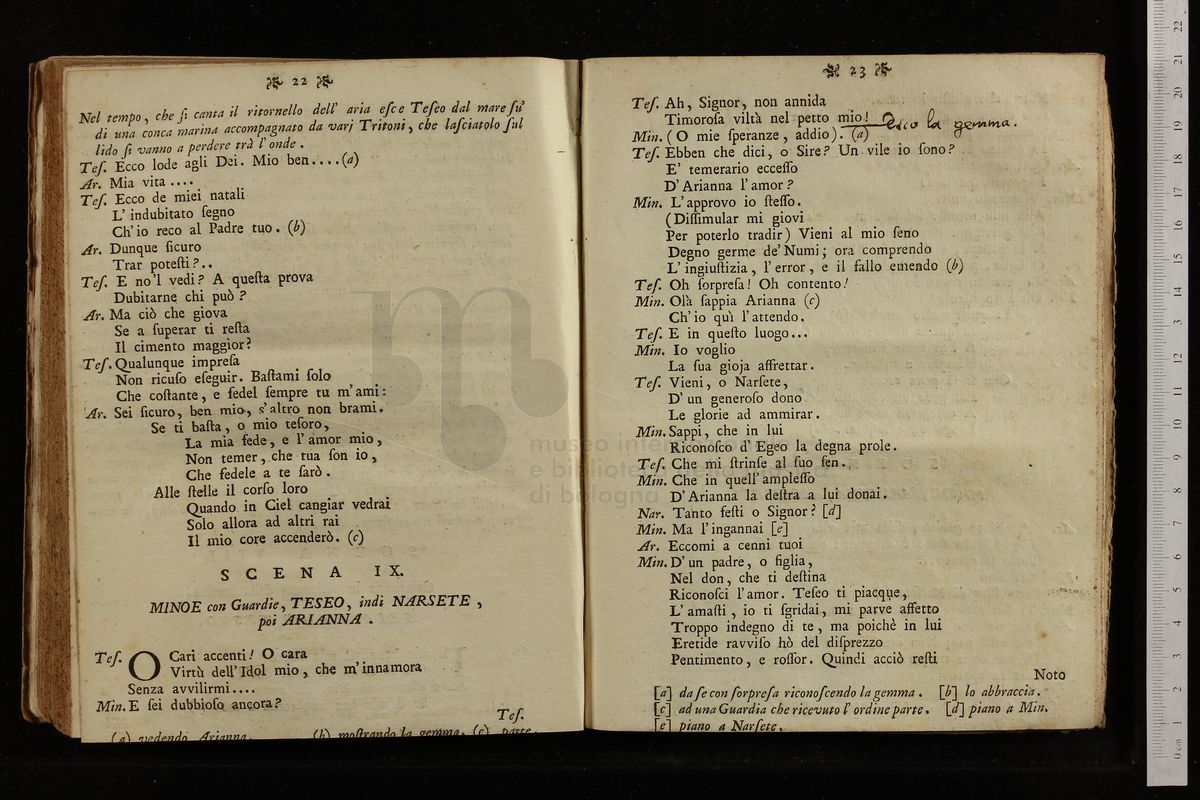 22
Nel tempo, che ſi canta il ritornello dell' aria eſce Teſeo dal mare ſu'
di una conca marina accompagnato da varj Tritoni, che laſciatolo ſul
lido ſi vanno a perdere trà l' onde.
Teſ. Ecco lode agli Dei. Mio ben....(a)
Ar. Mia vita ....
Teſ. Ecco de miei natali
L' indubitato ſegno
Ch' io reco al Padre tuo. (b)
Ar. Dunque ſicuro
Trar poteſti?..
Teſ. E no'l vedi? A queſta prova
Dubitarne chi può ?
Ar. Ma ciò che giova
Se a ſuperar ti reſta
Il cimento maggior?
Teſ. Qualunque impreſa
Non ricuſo eſeguir. Baſtami ſolo
Che coſtante, e fedel ſempre tu m'ami:
Ar. Sei ſicuro, ben mio, s'altro non brami.
Se ti baſta, o mio teſoro,
La mia fede, e l' amor mio,
Non temer, che tua ſon io,
Che fedele a te ſarò.
Alle ſtelle il corſo loro
Quando in Ciel cangiar vedrai
Solo allora ad altri rai
Il mio core accenderò. (c)
SCENA IX.
MINOE con Guardie, TESEO, indi NARSETE,
poi ARIANNA.
Teſ. O Cari accenti! O cara
Virtù dell'Idol mio, che m'innamora
Senza avvilirmi....
Min. E ſei dubbioſo ancora?
Teſ.
(a) vedendo Arianna. (b) moſtrando la gemma. (c) parte
23
Teſ. Ah, Signor, non annida
Timoroſa viltà nel petto mio!
Ecco la gemma.
Min. ( O mie ſperanze, addio). (a)
Teſ. Ebben che dici, o Sire? Un vile io ſono?
E' temerario ecceſſo
D'Arianna l'amor?
Min. L'approvo io ſteſſo.
(Diſſimular mi giovi
Per poterlo tradir) Vieni al mio ſeno
Degno germe de' Numi; ora comprendo
L' ingiuſtizia, l'error, e il fallo emendo (b)
Teſ. Oh ſorpreſa! Oh contento!
Min. Olà ſappia Arianna (c)
Ch'io quì l'attendo.
Teſ. E in queſto luogo...
Min. Io voglio
La ſua gioja affrettar.
Teſ. Vieni, o Narſete,
D' un generoſo dono
Le glorie ad ammirar.
Min. Sappi, che in lui
Riconoſco d'Egeo la degna prole.
Teſ. Che mi ſtrinſe al ſuo ſen.
Min. Che in quell'ampleſſo
D'Arianna la deſtra a lui donai.
Nar. Tanto feſti o Signor? [d]
Min. Ma l'ingannai [e]
Ar. Eccomi a cenni tuoi
Min. D'un padre, o figlia,
Nel don, che ti deſtina
Riconoſci l'amor. Teſeo ti piacque,
L'amaſti, io ti ſgridai, mi parve affetto
Troppo indegno di te, ma poichè in lui
Eretide ravviſo hò del diſprezzo
Pentimento, e roſſor. Quindi acciò reſti
Noto
[a] da ſe con ſorpreſa riconoſcendo la gemma. [b] lo abbraccia.
[c] ad una Guardia che ricevuto l'ordine parte. [d] piano a Min.
[e] piano a Narſete.